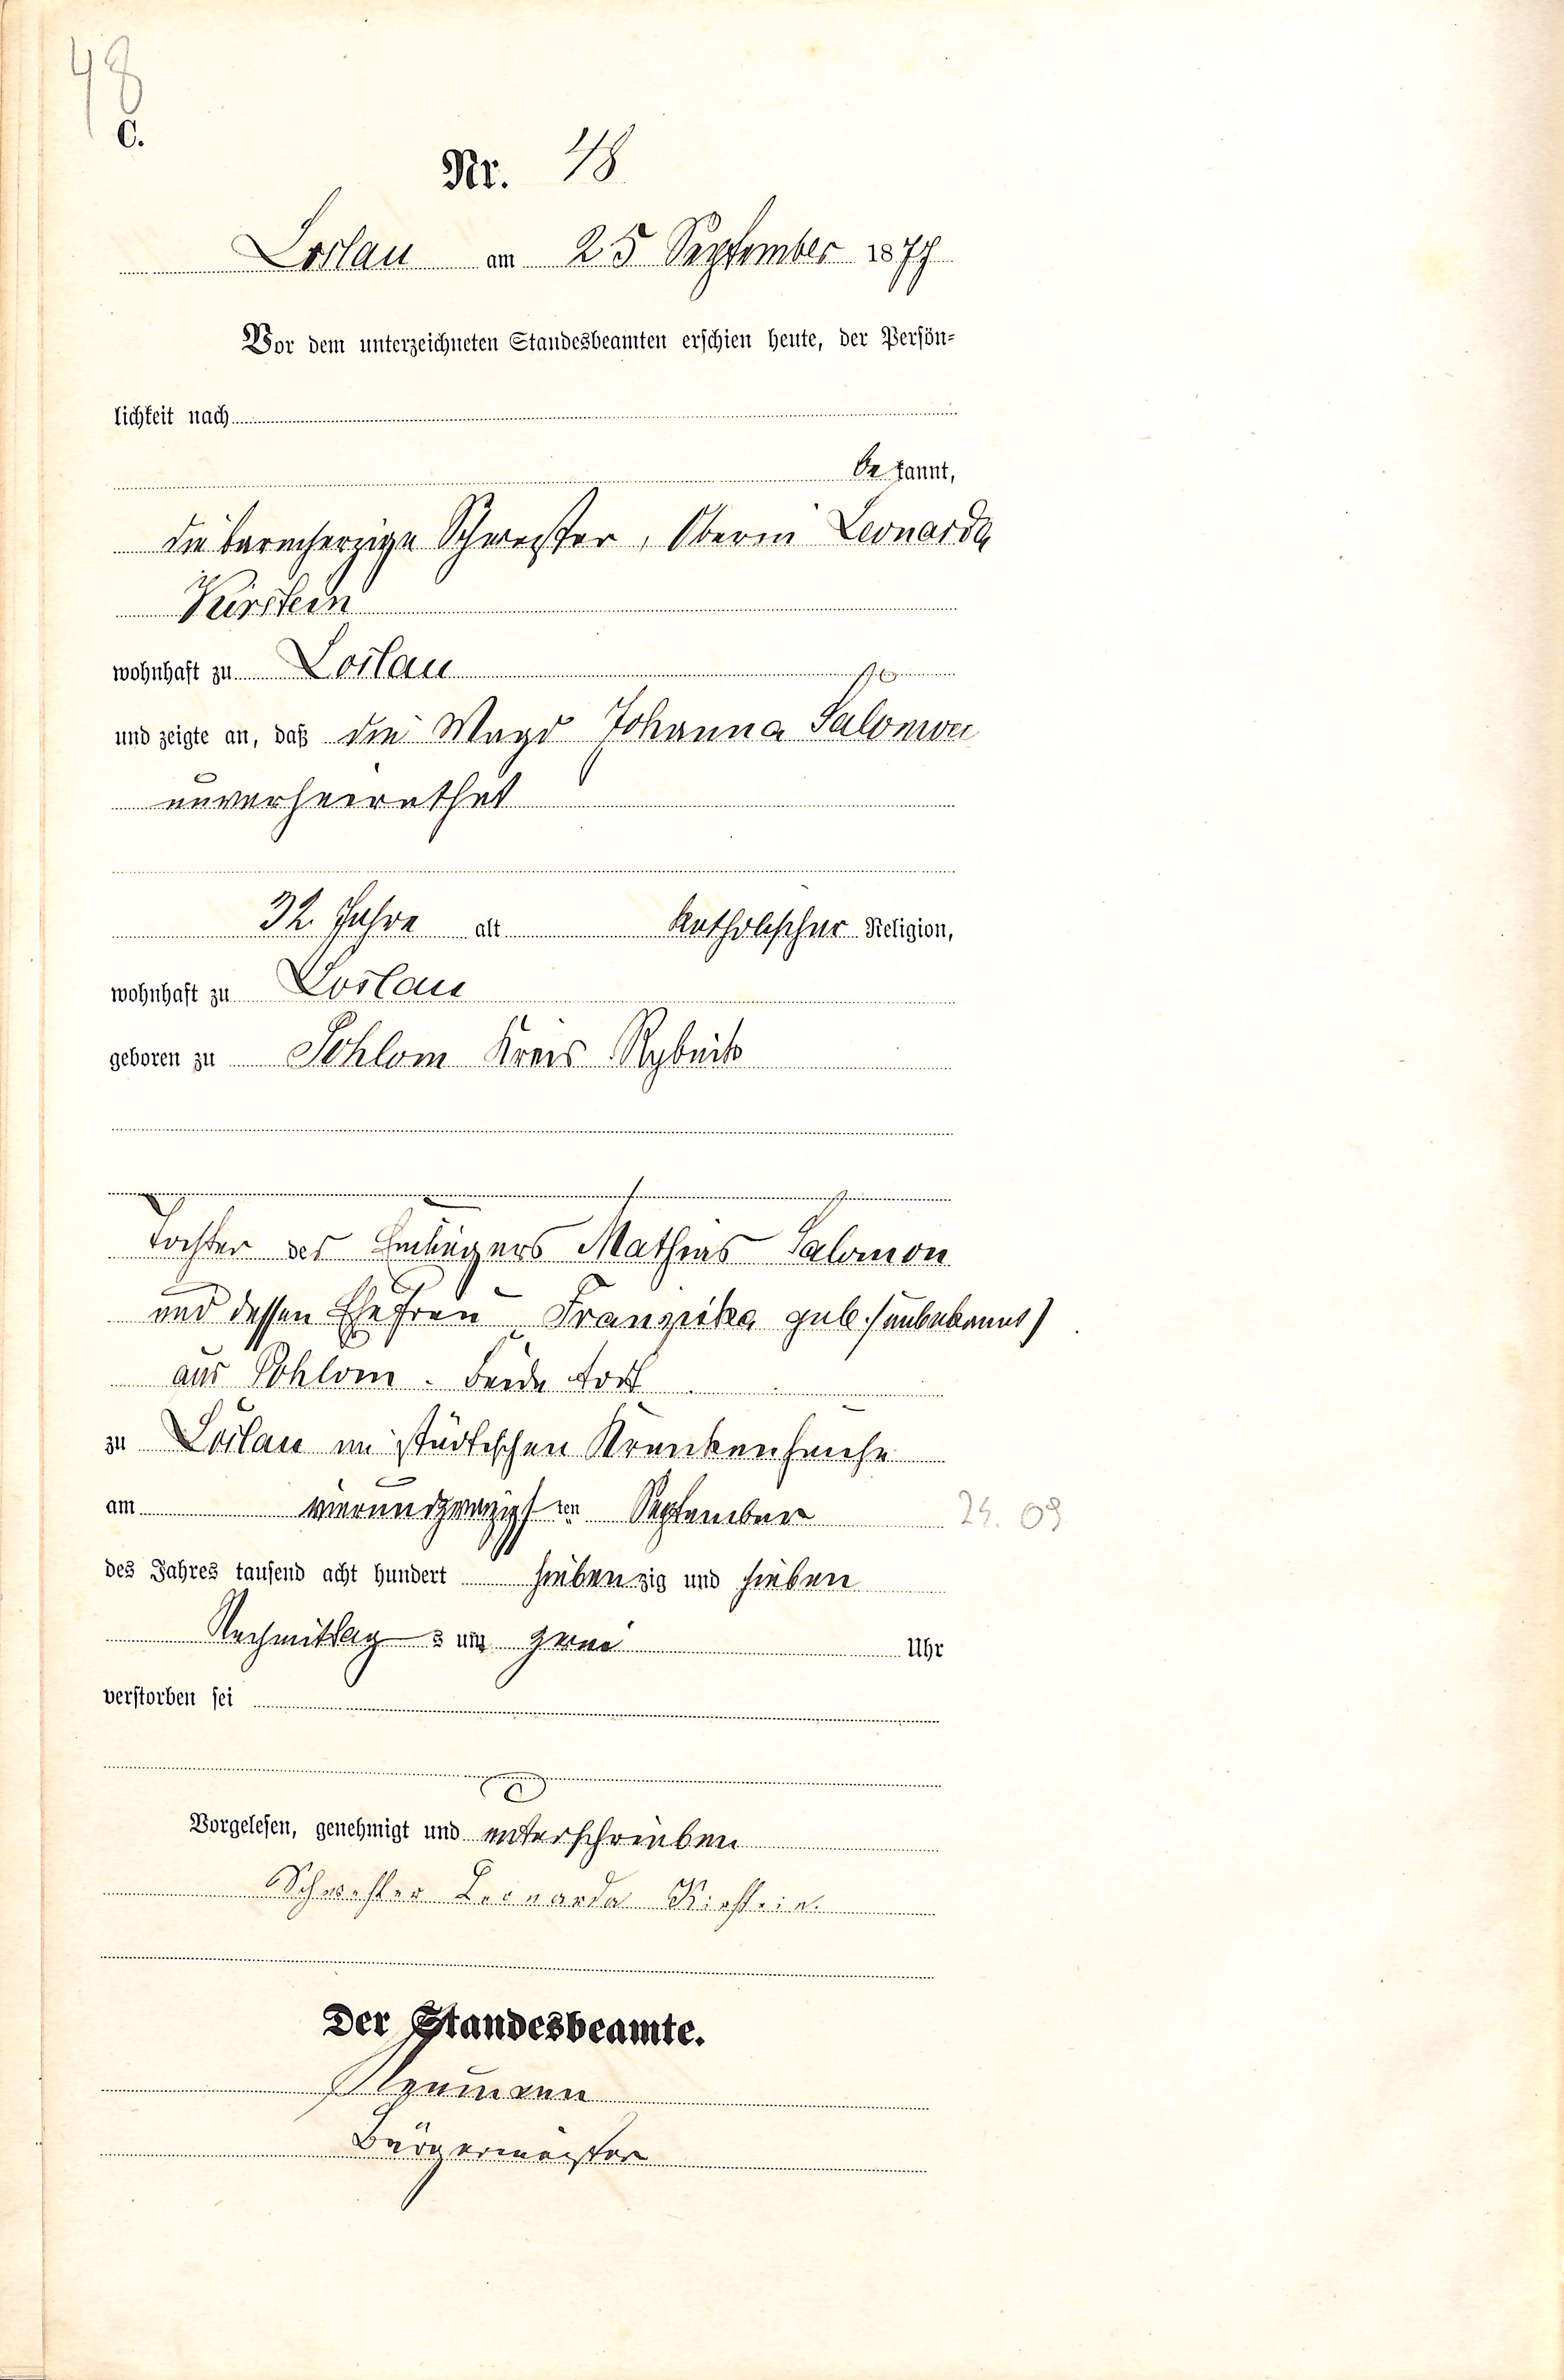 48
C.
Nr. 48
Loslau am 25 September 1877
Vor dem unterzeichneten Standesbeamten erschien heute, der Persön-
lichkeit nach
bekannt,
die barmherzige Schwester, Oberin Leonarda
Kirstein
wohnhaft zu Loslau
und zeigte an, daß die Magd Johanna Salomon
unverheirathet
32 Jahre alt katholischer Religion,
wohnhaft zu Loslau
geboren zu Pohlom Kreis Rybnik
Tochter des Einliegers Mathias Salomon
und dessen Ehefrau Franziska geb. /unbekannt/
aus Pohlom. Beide todt
zu Loslau im städtischen Krankenhause
am vierundzwanzigsten September
24.09
des Jahres tausend acht hundert siebenzig und sieben
Nachmittags um zwei Uhr
verstorben sei
Vorgelesen, genehmigt und unterschrieben
Schwester Leonarda Kirstein.
Der Standesbeamte.
Neumann
Bürgermeister